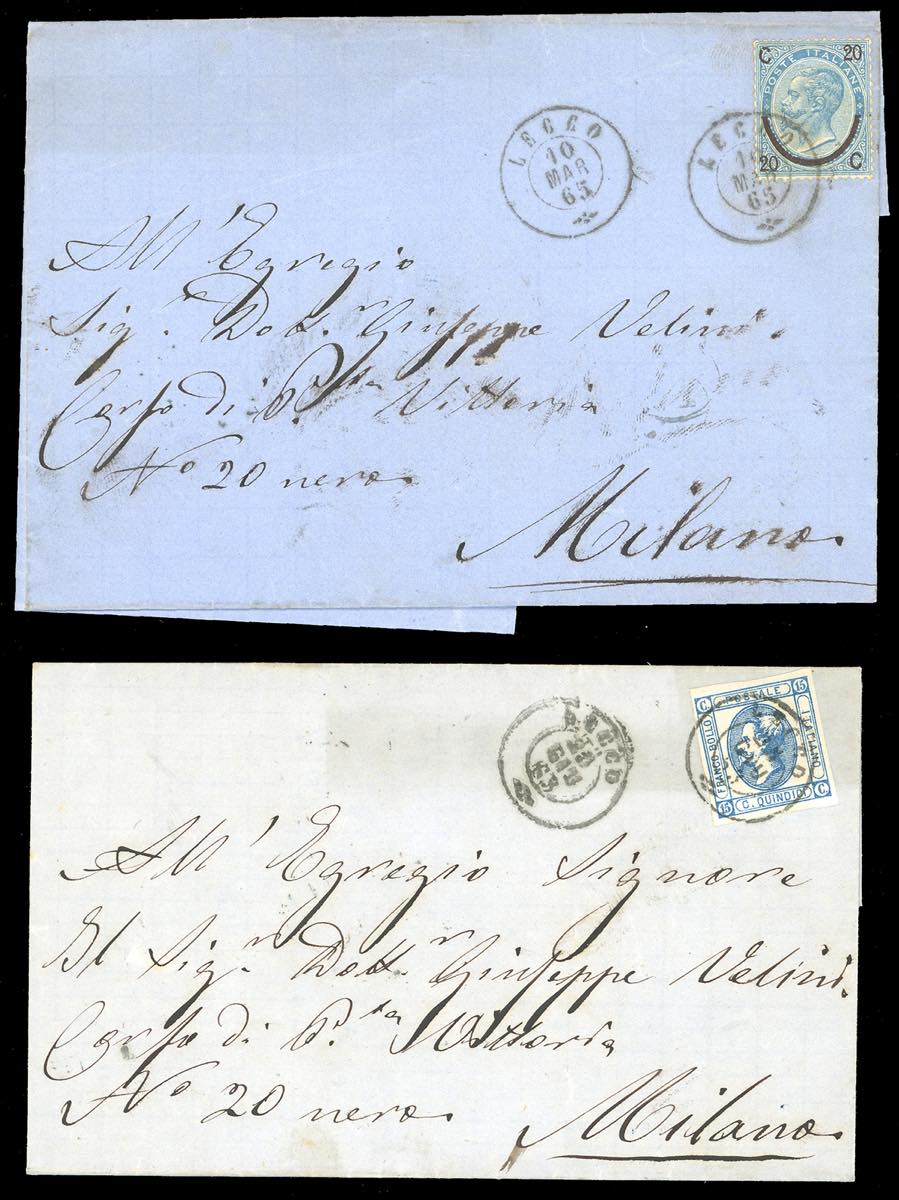 C 20
POSTE ITALIANE
20 C
LECCO
10
MAR
65
LECCO
MAR
65
All' Egregio
Sig.r Dott.r Giuseppe Velini.
Corso di P.ta Vittoria
No 20 nero.
Milano.
C. POSTALE 15
FRANCO BOLLO
ITALIANO
15 C. QUINDICI C.
LECCO
63
All' Egregio Signore
Il Sig.r Dott.r Giuseppe Velini.
Corso di P.ta Vittoria
No 20 nero.
Milano.